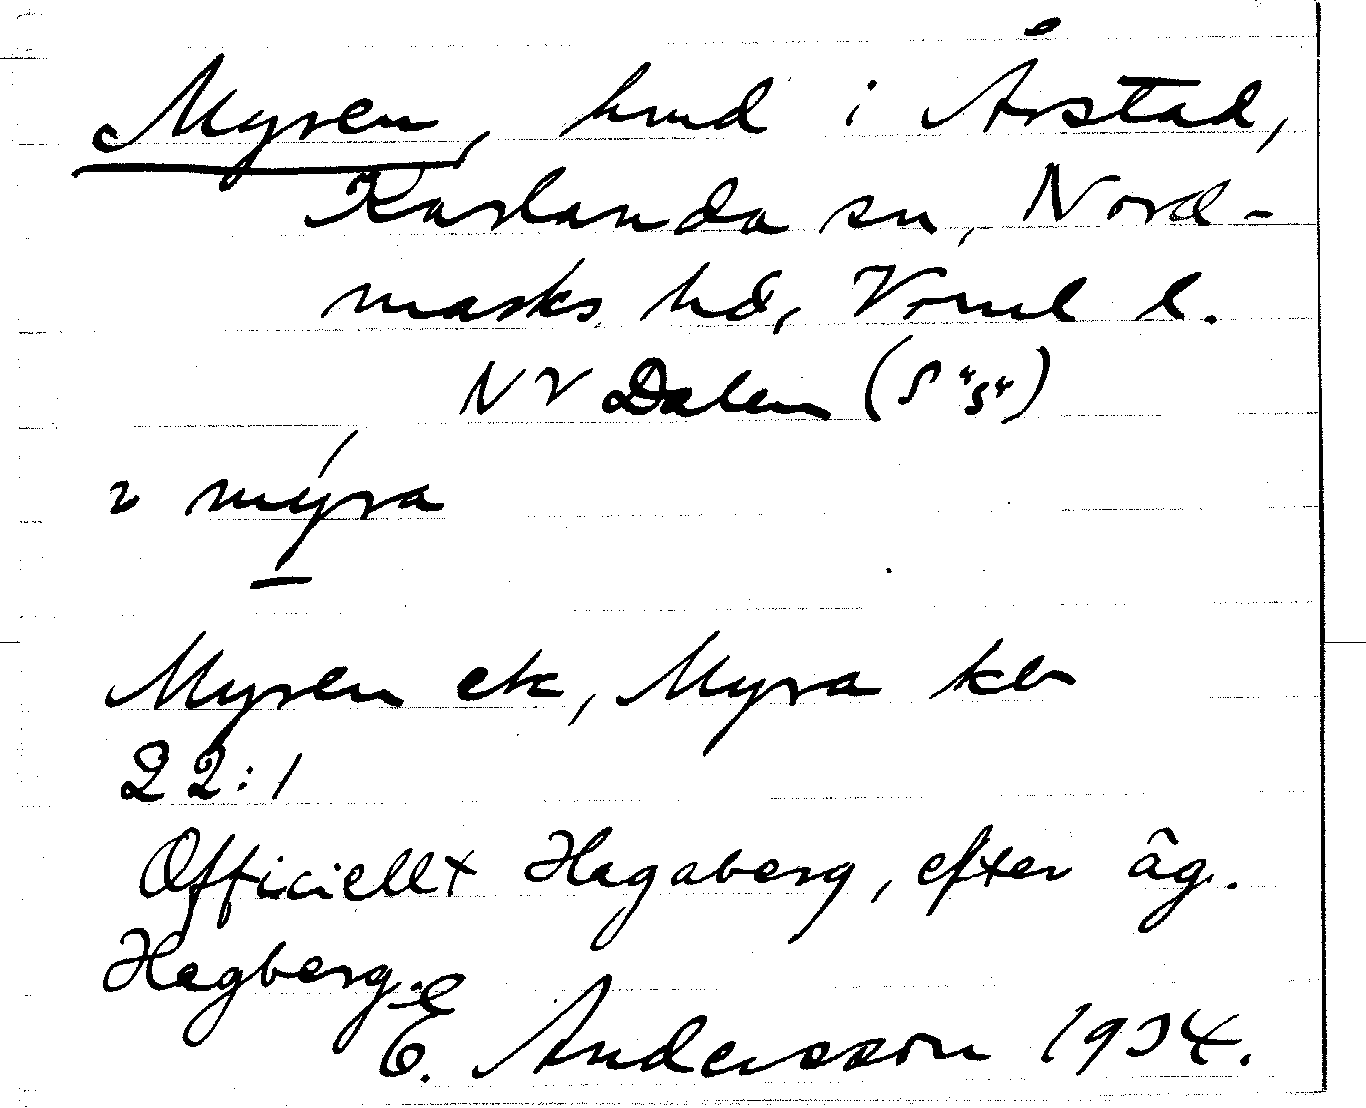 Myren, hmd i Årstad,
Karlanda sn, Nord-
marks hd, Vrml l.
NV Dalen (S "S")
v mýra
Myren ek, Myra kb
22:1
Officiellt Hagaberg, efter äg.
Hagberg.
E. Andersson 1934.